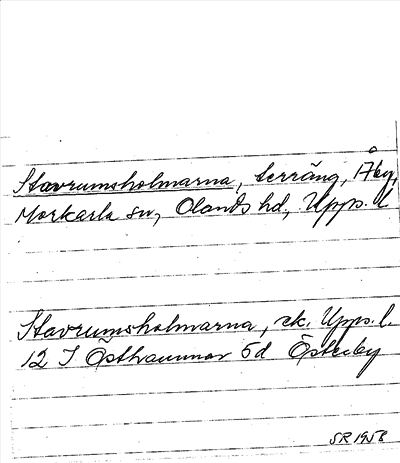 Stavrumsholmarna, terräng, Åby,
Morkarla sn, Olands hd, Upps. l
Stavrumsholmarna, ek. Upps. l.
12 I Östhammar 5d Österby
SR 1958